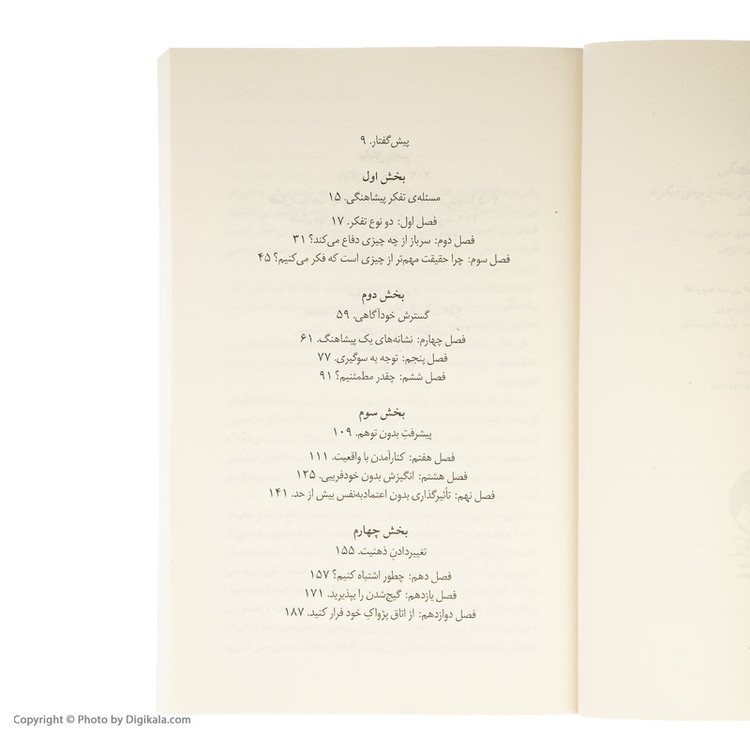 پیش‌گفتار. ۹
بخش اول
مسئله‌ی تفکر پیشاهنگی. ۱۵
فصل اول: دو نوع تفکر. ۱۷
فصل دوم: سرباز از چه چیزی دفاع می‌کند؟ ۳۱
فصل سوم: چرا حقیقت مهم‌تر از چیزی است که فکر می‌کنیم؟ ۴۵
بخش دوم
گسترش خودآگاهی. ۵۹
فصل چهارم: نشانه‌های یک پیشاهنگ. ۶۱
فصل پنجم: توجه به سوگیری. ۷۷
فصل ششم: چقدر مطمئنیم؟ ۹۱
بخش سوم
پیشرفتِ بدون توهم. ۱۰۹
فصل هفتم: کنارآمدن با واقعیت. ۱۱۱
فصل هشتم: انگیزش بدون خودفریبی. ۱۲۵
فصل نهم: تأثیرگذاری بدون اعتمادبه‌نفس بیش از حد. ۱۴۱
بخش چهارم
تغییردادنِ ذهنیت. ۱۵۵
فصل دهم: چطور اشتباه کنیم؟ ۱۵۷
فصل یازدهم: گیج‌شدن را بپذیرید. ۱۷۱
فصل دوازدهم: از اتاق پژواکِ خود فرار کنید. ۱۸۷
Copyright © Photo by Digikala.com